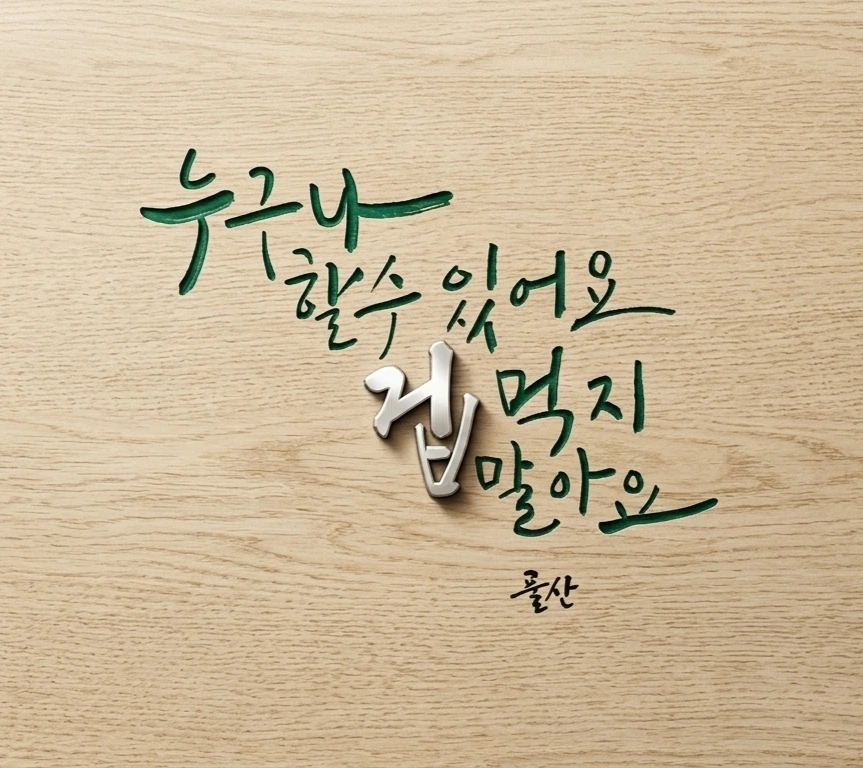 누구나
할 수 있어요
겁 먹지
말아요
풀산